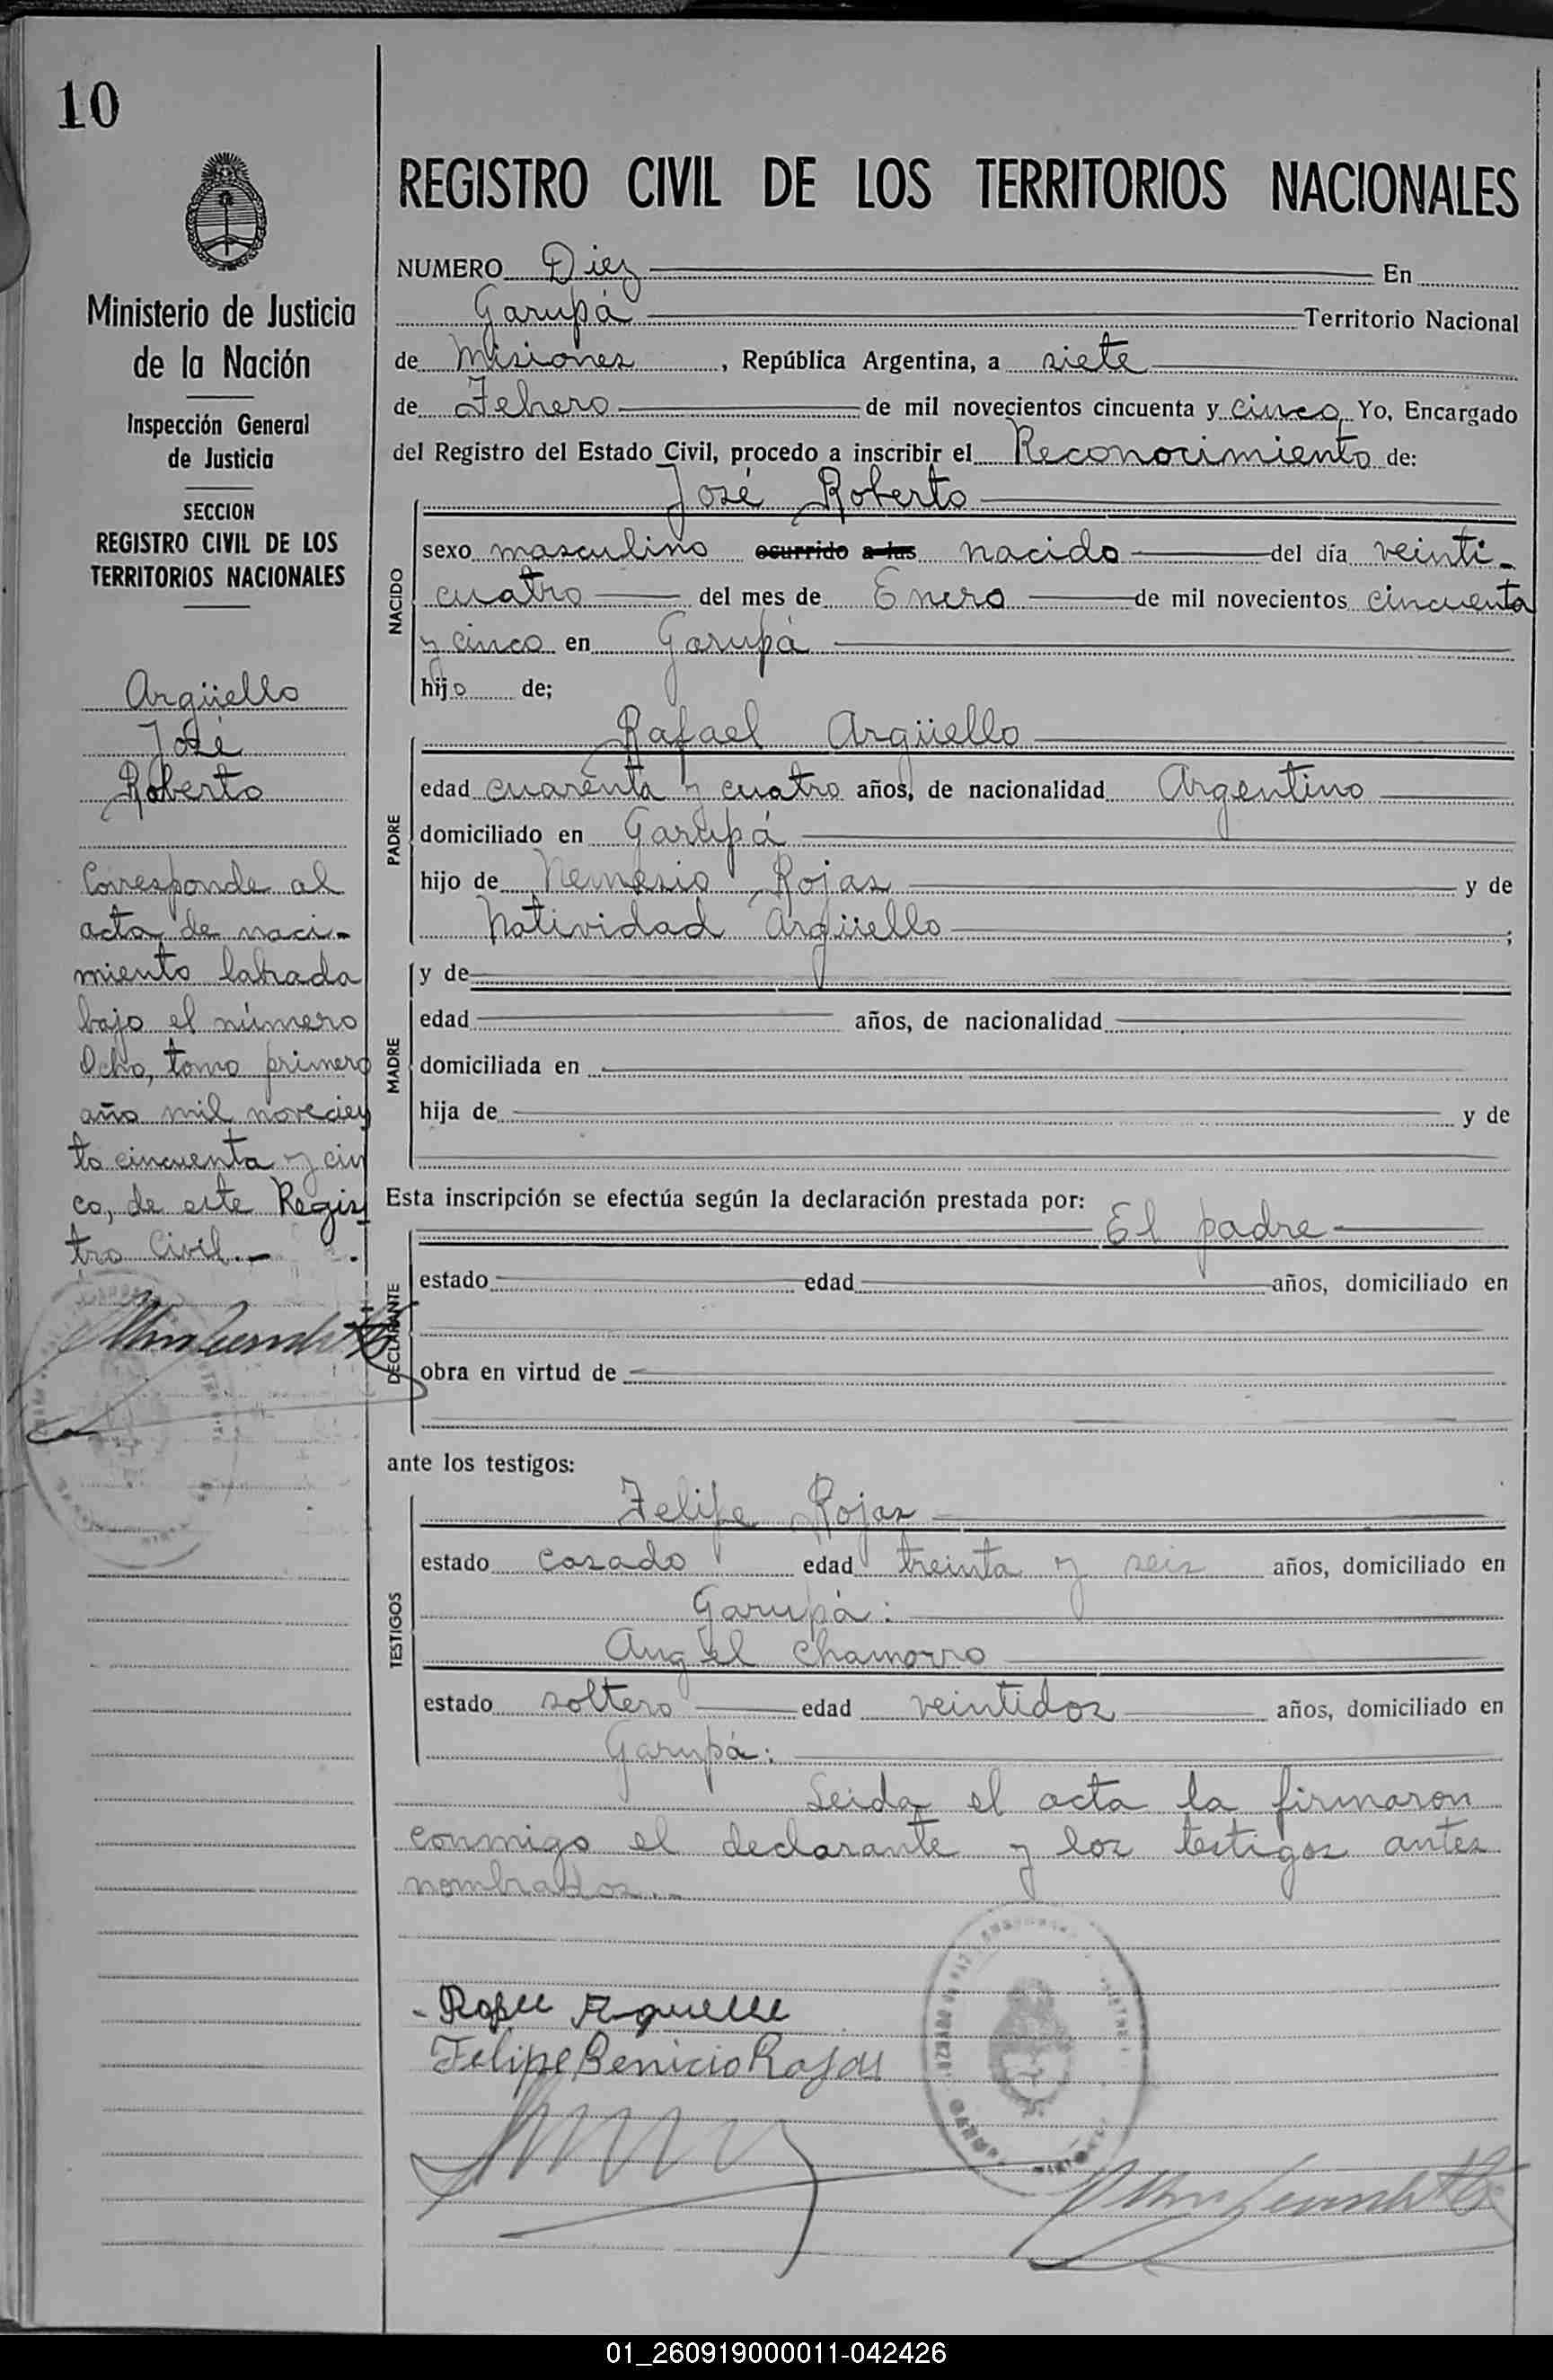 10
Ministerio de Justicia
de la Nación
Inspección General
de Justicia
SECCION
REGISTRO CIVIL DE LOS
TERRITORIOS NACIONALES
Argüello
José
Roberto
Corresponde al
acta de naci-
miento labrada
bajo el número
Ocho, tomo primero
año mil novecien
to cincuenta y cin
co, de este Regis
tro Civil.-
REGISTRO CIVIL DE LOS TERRITORIOS NACIONALES
NUMERO Diez En
Garupá Territorio Nacional
de Misiones, República Argentina, a siete
de Febrero de mil novecientos cincuenta y cinco Yo, Encargado
del Registro del Estado Civil, procedo a inscribir el Reconocimiento de:
NACIDO
José Roberto
sexo masculino ocurrido a las nacido del día veinti-
cuatro del mes de Enero de mil novecientos cincuenta
y cinco en Garupá
hijo de;
PADRE
Rafael Argüello
edad cuarenta y cuatro años, de nacionalidad Argentino
domiciliado en Garupá
hijo de Nemesio Rojas y de
Natividad Argüello ;
MADRE
y de
edad años, de nacionalidad
domiciliada en
hija de y de
Esta inscripción se efectúa según la declaración prestada por:
DECLARANTE
El padre
estado edad años, domiciliado en
obra en virtud de
ante los testigos:
TESTIGOS
Felipe Rojas
estado casado edad treinta y seis años, domiciliado en
Garupá:
Angel Chamorro
estado soltero edad veintidos años, domiciliado en
Garupá:
Leida el acta la firmaron
conmigo el declarante y los testigos antes
nombrados.-
Felipe Benicio Rojas
01_260919000011-042426